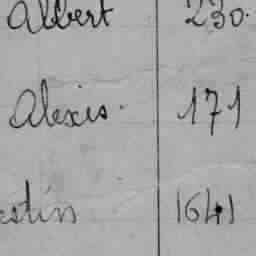 Albert 230.
Alexis. 171
estin 1641